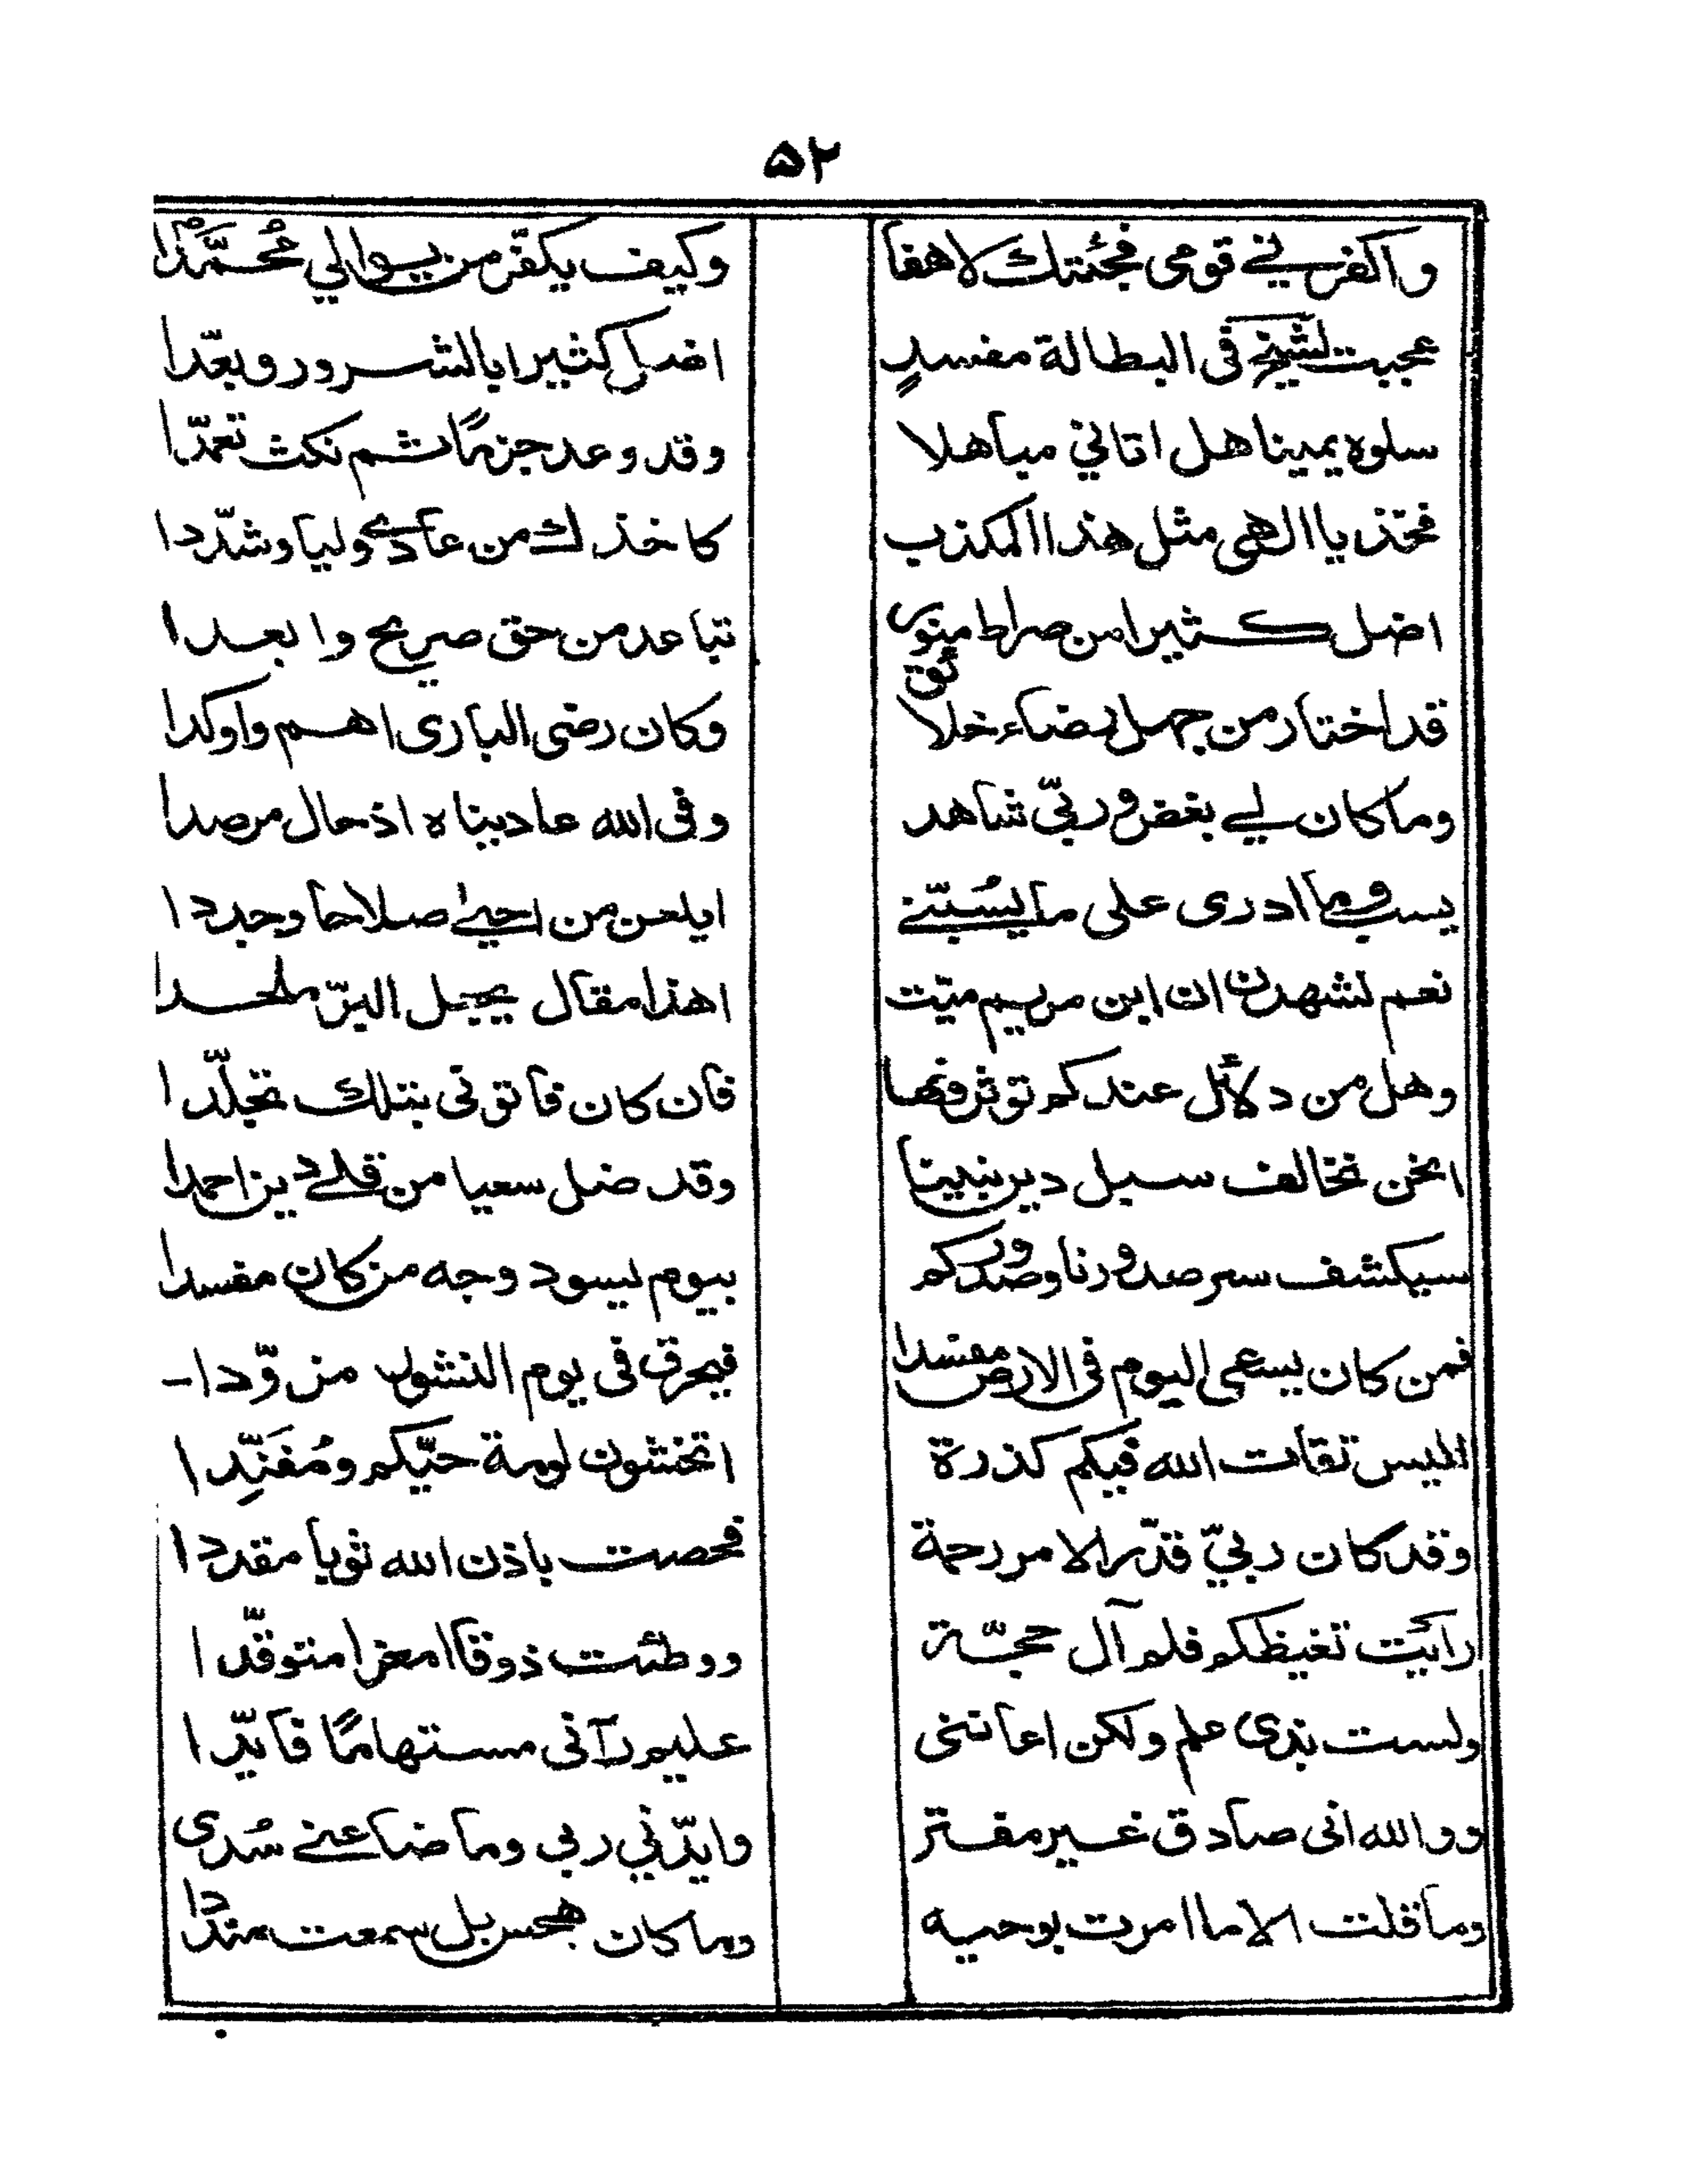 ۵۲
واكفرني قومى فجئتك لاهفا وكيف يكفّر من يوالي مُحَمَّدْا
عجبت لشيخ فى البطالة مفسدٍ اضل كثيرا بالشرور وبعّدا
سلوه يمينا هل اتاني مباهلا وقد وعد جزمًا ثم نكث تعمّدا
فخذ يا الهى مثل هذا المكذب كاخذك من عادى وليا وشدّدا
اضل كثيرا من صراط منور تباعد من حق صريح وابعدا
قد اختار من جهل رضاء خلائق وكان رضى البارى اهم واوكدا
وما كان لي بغض وربّي شاهد وفى الله عاديناه اذ حال مرصدا
يسب وما ادرى على ما يسُبّني ايلعن من احيى صلاحا وجددا
نعم نشهدن ان ابن مريم ميّت اهذا مقال يجعل البرّ ملحدا
وهل من دلائل عندكم توثرونها فان كان فاتونى بتلك تجلّدا
انحن نخالف سبل دين نبينا وقد ضل سعيا من قلى دين احمدا
سيكشف سر صدورنا وصدوركم بيوم يسود وجه من كان مفسدا
فمن كان يسعى اليوم فى الارض مفسدا فيحرق فى يوم النشور مزوّدا-
اليس تقات الله فيكم كذرة اتخشون لومة حيّكم ومُفَنِّدا
وقد كان ربيّ قدّر الامر رحمة فحصت باذن الله ثوبا مقددا
رائيت تغيظكم فلم آل حجّة ووطئت ذوقا امعزا متوقّدا
ولست بذى علم ولكن اعاننى عليم رآنى مستهامًا فايّدا
ووالله انى صادق غير مفتر وايّدني ربى وما ضاعني سُدى
وما قلت الا ما امرت بوحيه وما كان هجس بل سمعت مندّدا